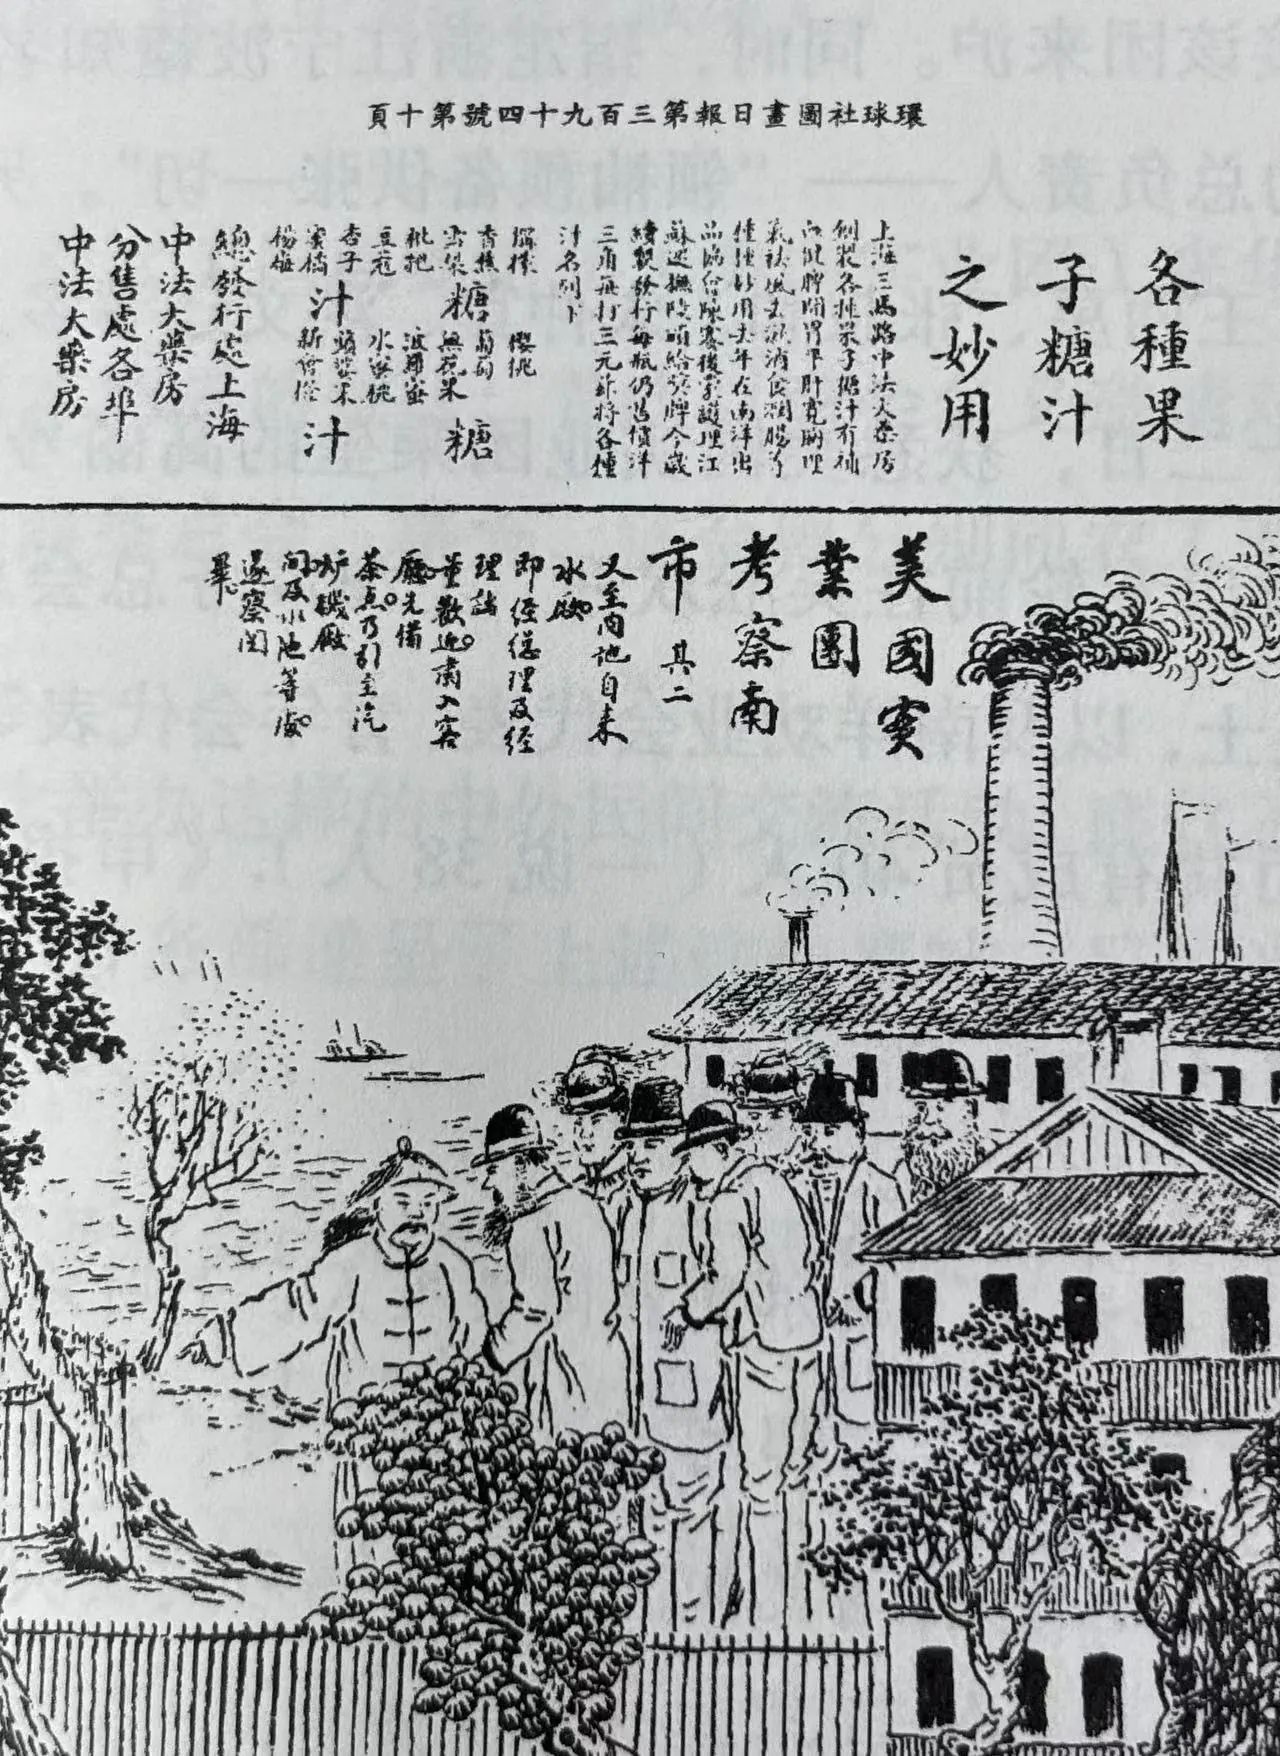 環球社圖畫日報第三百九十四號第十頁
各種果
子糖汁
之妙用
上海三馬路中法大藥房
創製各種果子糖汁有補
血健脾開胃平肝寬胸理
氣祛風去濕消食潤腸等
種種妙用去年在南洋出
品協會陳賽後蒙護理江
蘇巡撫陸頒給獎牌今歲
續製發行每瓶仍售價洋
三角每打三元茲將各種
汁名列下
檸檬 櫻桃
香蕉 葡萄
雪梨 糖 無花果 糖
枇杷 波羅蜜
豆蔻 水蜜桃
杏子 蘋婆果
蜜橘 汁 新會橙 汁
楊梅
總發行處上海
中法大藥房
分售處各埠
中法大藥房
美國實
業團
考察南
市 其二
又至内地自来
水廠。
即經總理及經
理諸
董歡迎。肅入客
廳。先備
茶点。乃引至汽
炉機廠
间及水池等處。
遂察阅
畢。